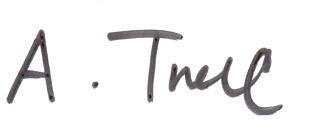 A. Tnell